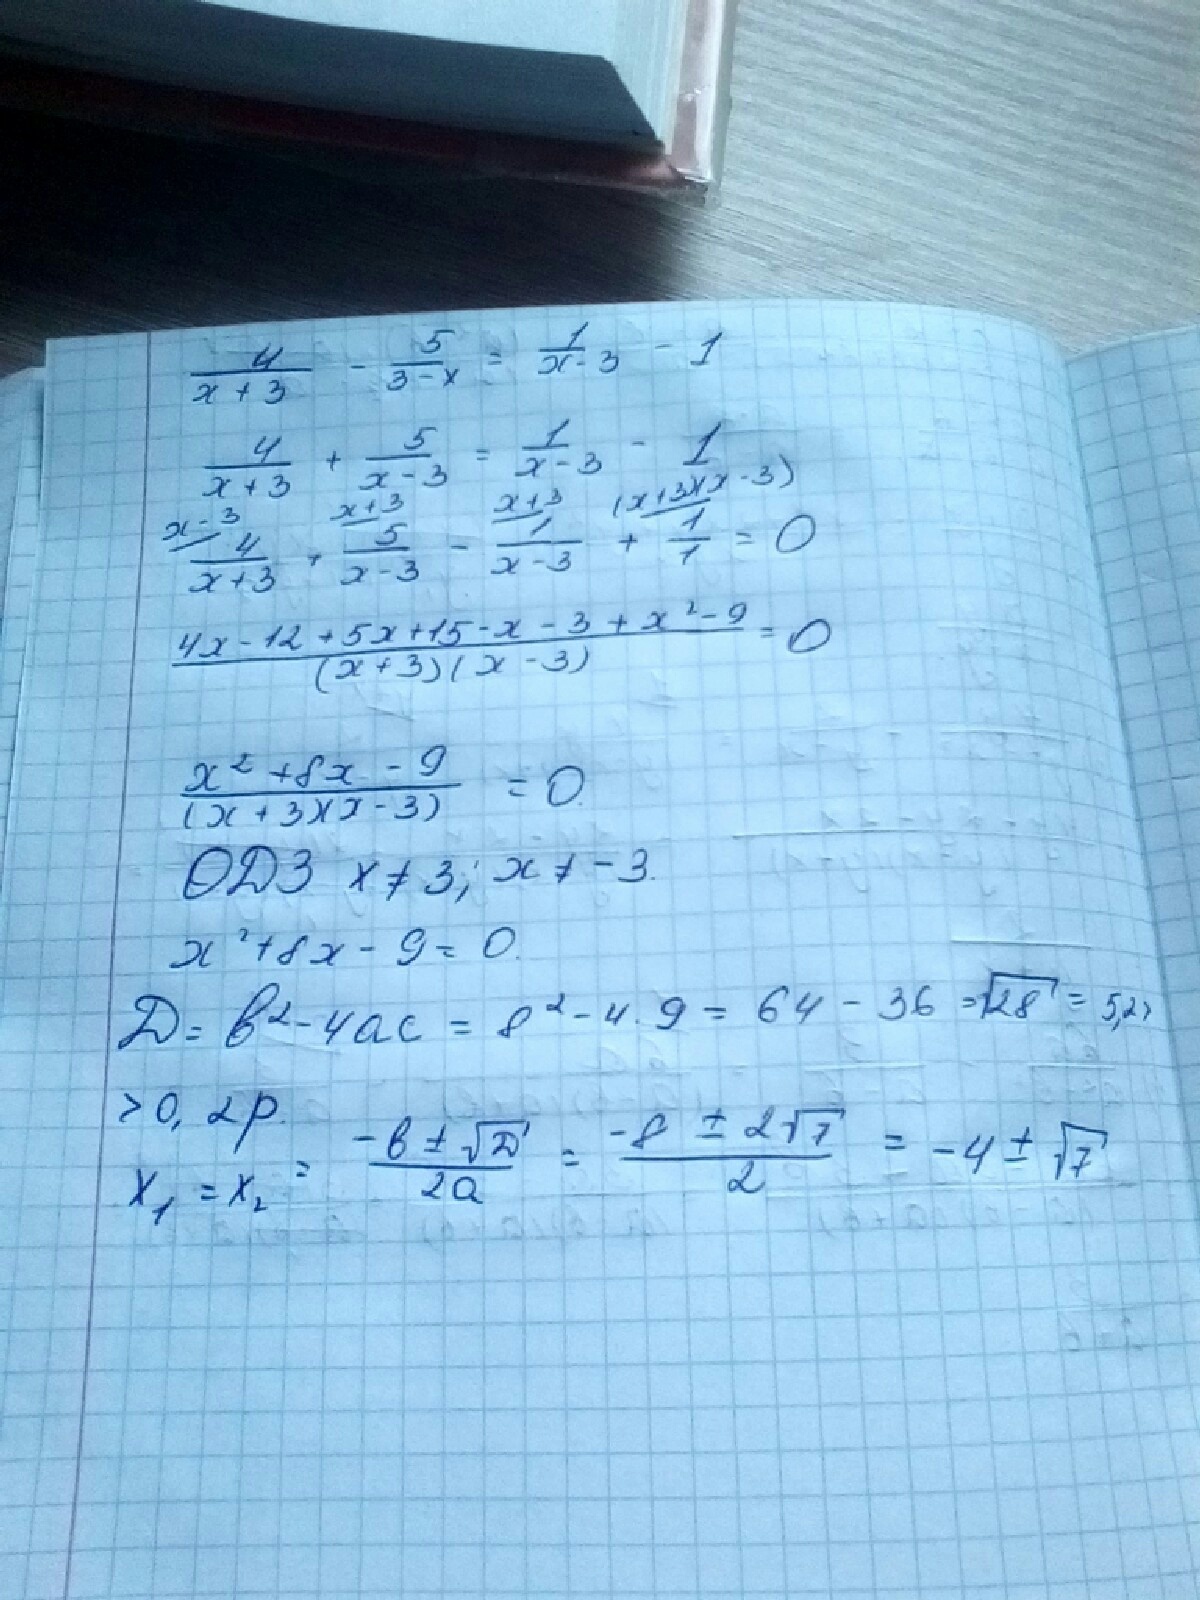 4/(x+3) - 5/(3-x) = 1/(x-3) - 1
4/(x+3) + 5/(x-3) = 1/(x-3) - 1
x-3 x+3 x+3 (x+3)(x-3)
4/(x+3) + 5/(x-3) - 1/(x-3) + 1/1 = 0
(4x-12+5x+15-x-3+x²-9)/((x+3)(x-3)) = 0
(x²+8x-9)/((x+3)(x-3)) = 0.
ОДЗ x≠3; x≠-3.
x²+8x-9=0.
D=b²-4ac=8²-4·9=64-36=√28=5,2
>0, 2р.
x₁=x₂=(-b±√D)/2a=(-8±2√7)/2=-4±√7